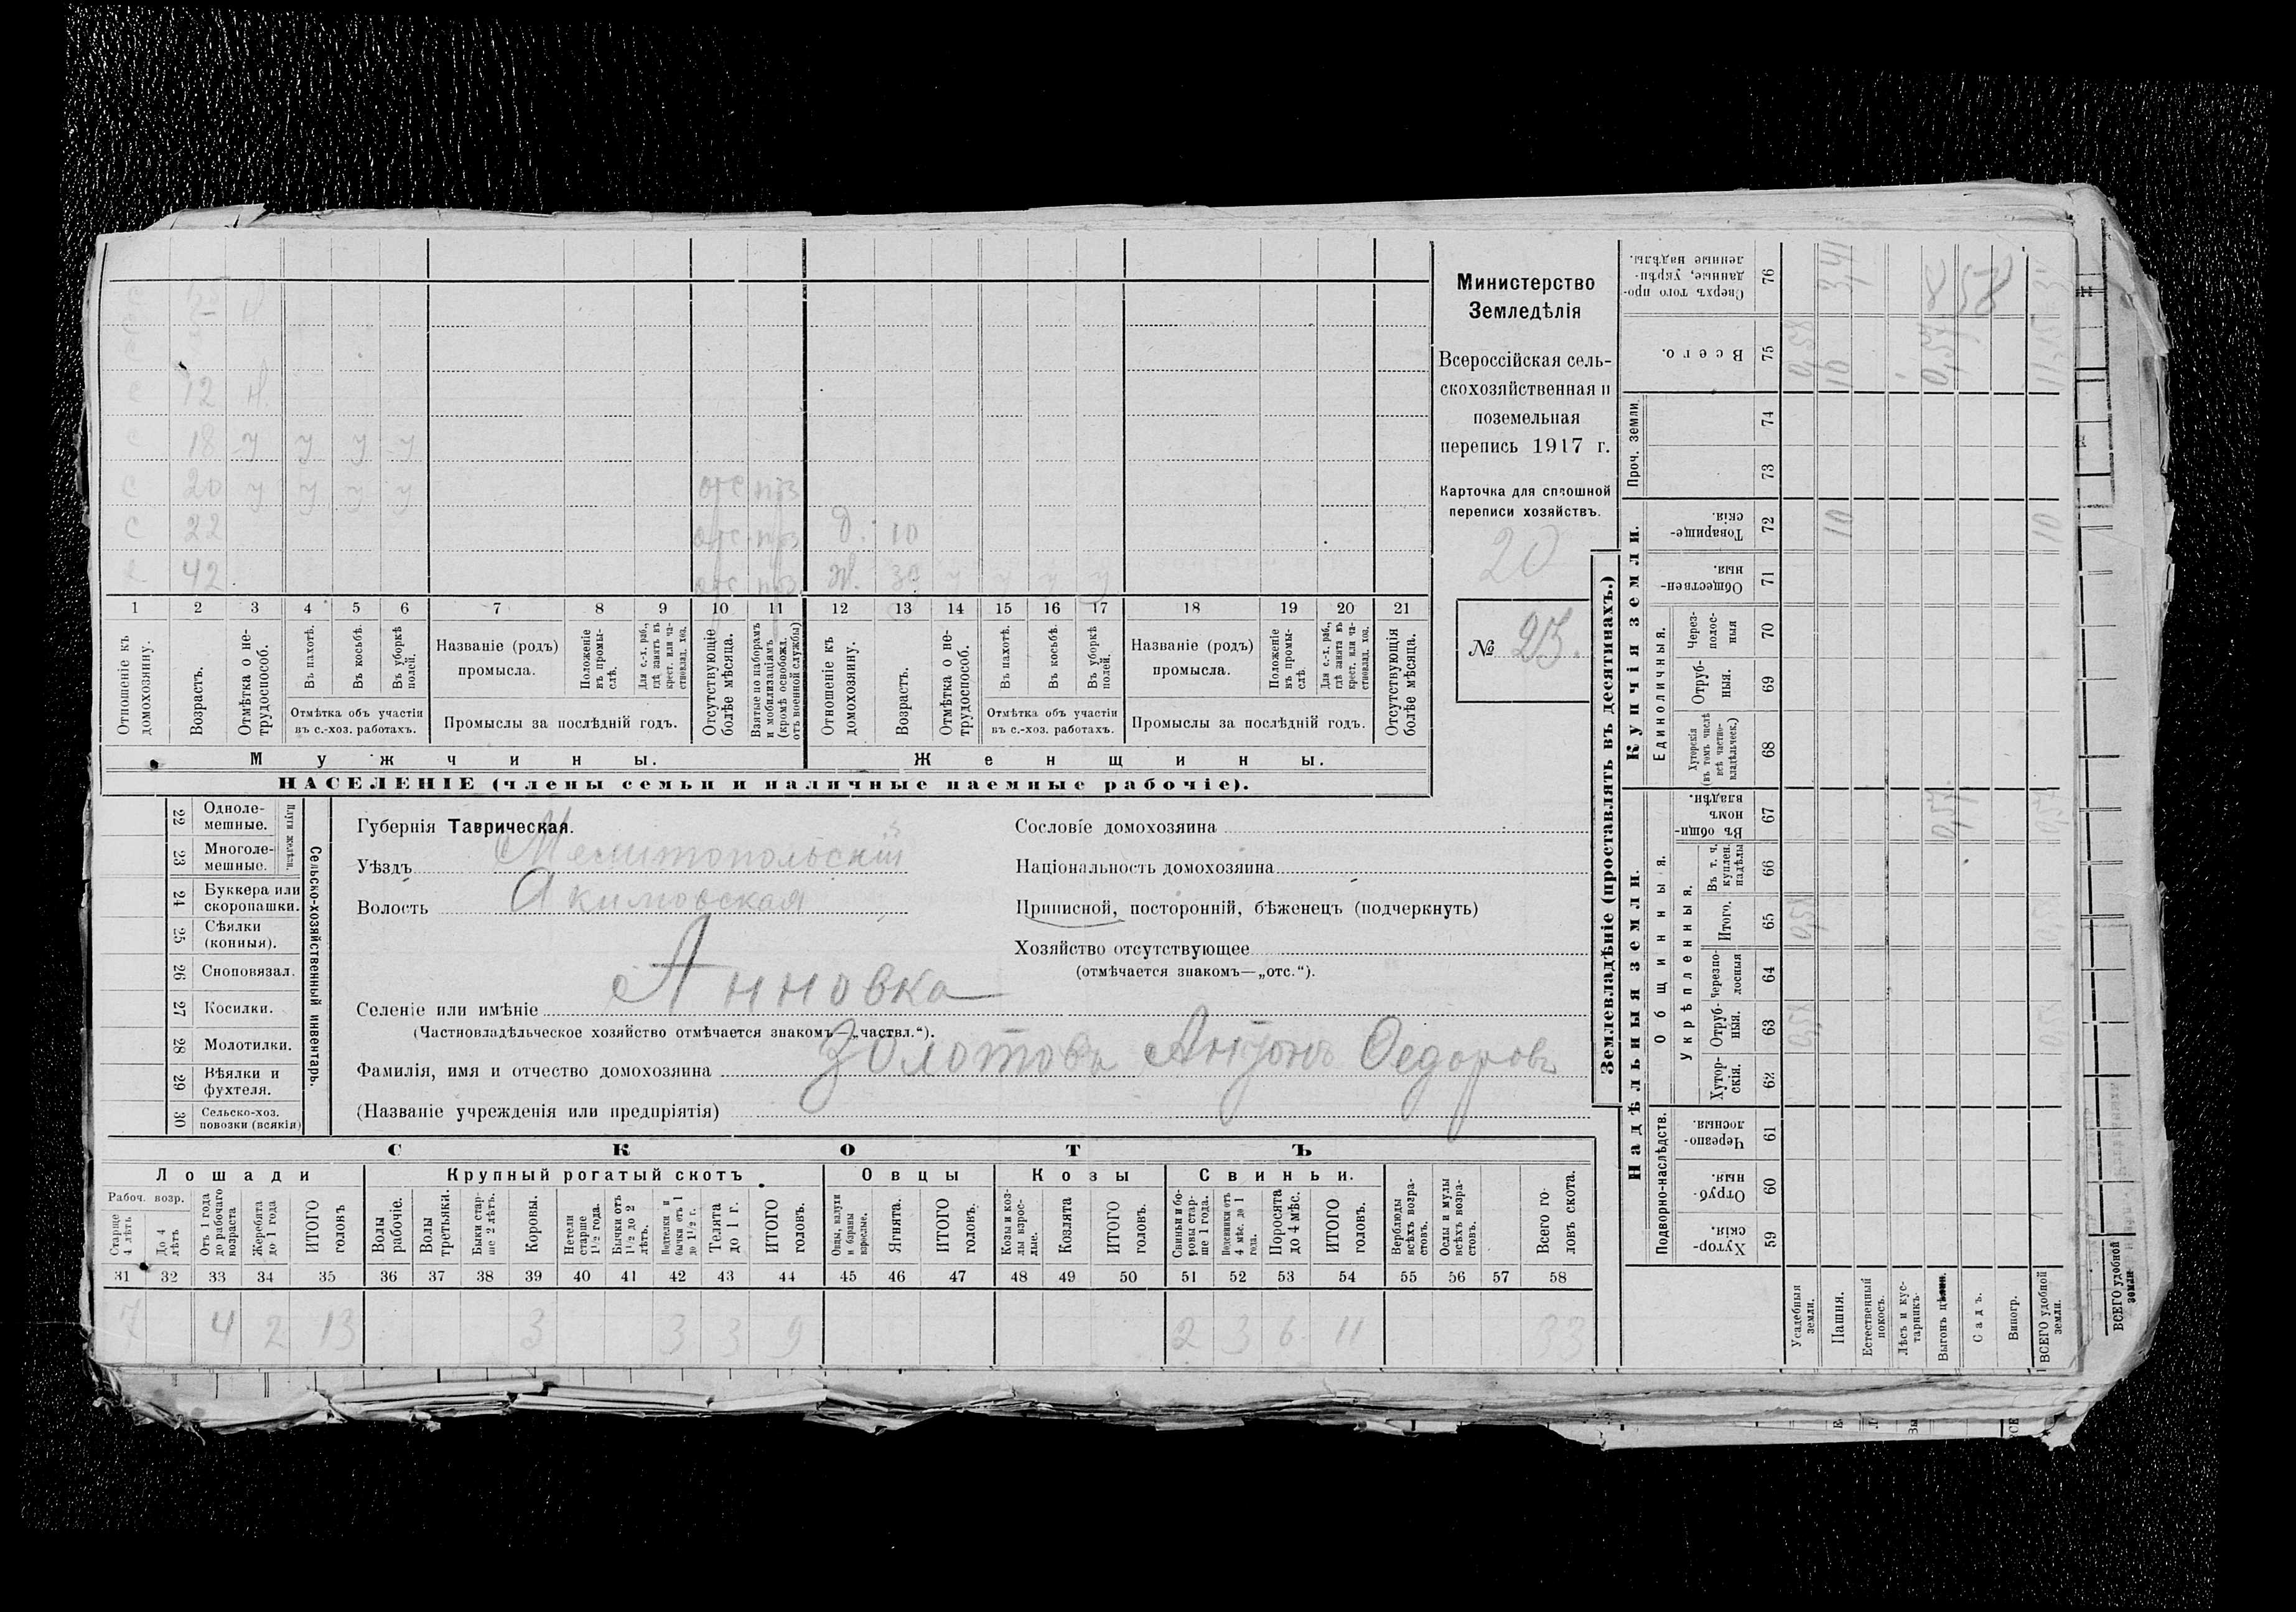 Министерство
Земледѣлія
Всероссійская сель-
скохозяйственная и
поземельная
перепись 1917 г.
Карточка для сплошной
переписи хозяйствъ.
20
№ 23.
С 12 Н.
С 18 у у у у
С 20 у у у у отс
С 22 отс Д. 10
42 отс Ж.
1 2 3 4 5 6 7 8 9 10 11 12 13 14 15 16 17 18 19 20 21
Отношеніе къ домохозяину.
Возрастъ.
Отмѣтка о не-трудоспособ.
Въ пахотѣ.
Въ косьбѣ.
Въ уборкѣ полей.
Отмѣтка объ участіи
въ с.-хоз. работахъ.
Названіе (родъ)
промысла.
Положеніе въ промы-слѣ.
Для с.-х. раб., гдѣ занятъ въ крест. или ча-стновлад. хоз.
Промыслы за послѣдній годъ.
Отсутствующіе болѣе мѣсяца.
Взятые по наборамъ и мобилизаціямъ (кромѣ освобожд. отъ военной службы)
Отношеніе къ домохозяину.
Возрастъ.
Отмѣтка о не-трудоспособ.
Въ пахотѣ.
Въ косьбѣ.
Въ уборкѣ полей.
Отмѣтка объ участіи
въ с.-хоз. работахъ.
Названіе (родъ)
промысла.
Положеніе въ промы-слѣ.
Для с.-х. раб., гдѣ занята въ крест. или ча-стновлад. хоз.
Промыслы за послѣдній годъ.
Отсутствующія болѣе мѣсяца.
Мужчины.
Женщины.
НАСЕЛЕНІЕ (члены семьи и наличные наемные рабочіе).
22 Одноле-мешные.
23 Многоле-мешные.
Плуги желѣзн.
24 Буккера или скоропашки.
25 Сѣялки (конныя).
26 Сноповязал.
27 Косилки.
28 Молотилки.
29 Вѣялки и фухтеля.
30 Сельско-хоз. повозки (всякія)
Сельско-хозяйственный инвентарь.
Губернія Таврическая.
Уѣздъ Мелитопольскій
Волость Акимовская
Селеніе или имѣніе Анновка
(Частновладѣльческое хозяйство отмѣчается знакомъ—„частвл.“).
Фамилія, имя и отчество домохозяина Золотовъ Антонъ Федоровъ
(Названіе учрежденія или предпріятія)
Сословіе домохозяина
Національность домохозяина
Приписной, посторонній, бѣженецъ (подчеркнуть)
Хозяйство отсутствующее
(отмѣчается знакомъ—„отс.“).
СКОТЪ
Лошади
Крупный рогатый скотъ
Овцы
Козы
Свиньи.
Рабоч. возр.
Старше 4 лѣтъ
До 4 лѣтъ
Отъ 1 года до рабочаго возраста
Жеребята до 1 года
ИТОГО головъ
Волы рабочіе.
Волы третьяки.
Быки стар-ше 2 лѣтъ.
Коровы.
Нетели старше 1½ года.
Бычки отъ 1½ до 2 лѣтъ.
Подтелки и бычки отъ 1 до 1½ г.
Телята до 1 г.
ИТОГО головъ.
Овцы, валухи и бараны взрослые.
Ягнята.
ИТОГО головъ.
Козы и коз-лы взрос-лые.
Козлята
ИТОГО головъ.
Свиньи и бо-ровы стар-ше 1 года.
Подсвинки отъ 4 мѣс. до 1 года.
Поросята до 4 мѣс.
ИТОГО головъ.
Верблюды всѣхъ возра-стовъ.
Ослы и мулы всѣхъ возра-стовъ.
Всего го-ловъ скота.
31 32 33 34 35 36 37 38 39 40 41 42 43 44 45 46 47 48 49 50 51 52 53 54 55 56 57 58
7 4 2 13 3 3 3 9 2 3 6 11 33
Землевладѣніе (проставлять въ десятинахъ.)
Надѣльныя земли.
Купчія земли.
Подворно-наслѣдств.
Общинныя.
Укрѣпленныя.
Единоличныя.
Проч. земли
Хутор-скія. 59
Отруб-ныя. 60
Черезпо-лосныя. 61
Хутор-скія. 62
Отруб-ныя. 63
Черезпо-лосныя 64
Итого. 65
Въ т. ч. куплен. надѣлы 66
Въ общи-номъ владѣн. 67
Хуторскія (въ томъ числѣ всѣ частно-владѣльческ.) 68
Отруб-ныя. 69
Через-полос-ныя 70
Обществен-ныя. 71
Товарище-скія. 72
73
74
Всего. 75
Сверхъ того про-данные, укрѣп-ленные надѣлы. 76
Усадебныя земли. 0,58 0,58 0,58
Пашня. 10 10 3,41
Естественный покосъ.
Лѣсъ и кус-тарникъ
Выгонъ 0,57 0,57
Садъ.
Виногр.
ВСЕГО удобной земли. 10 11,15
ВСЕГО удобной земли